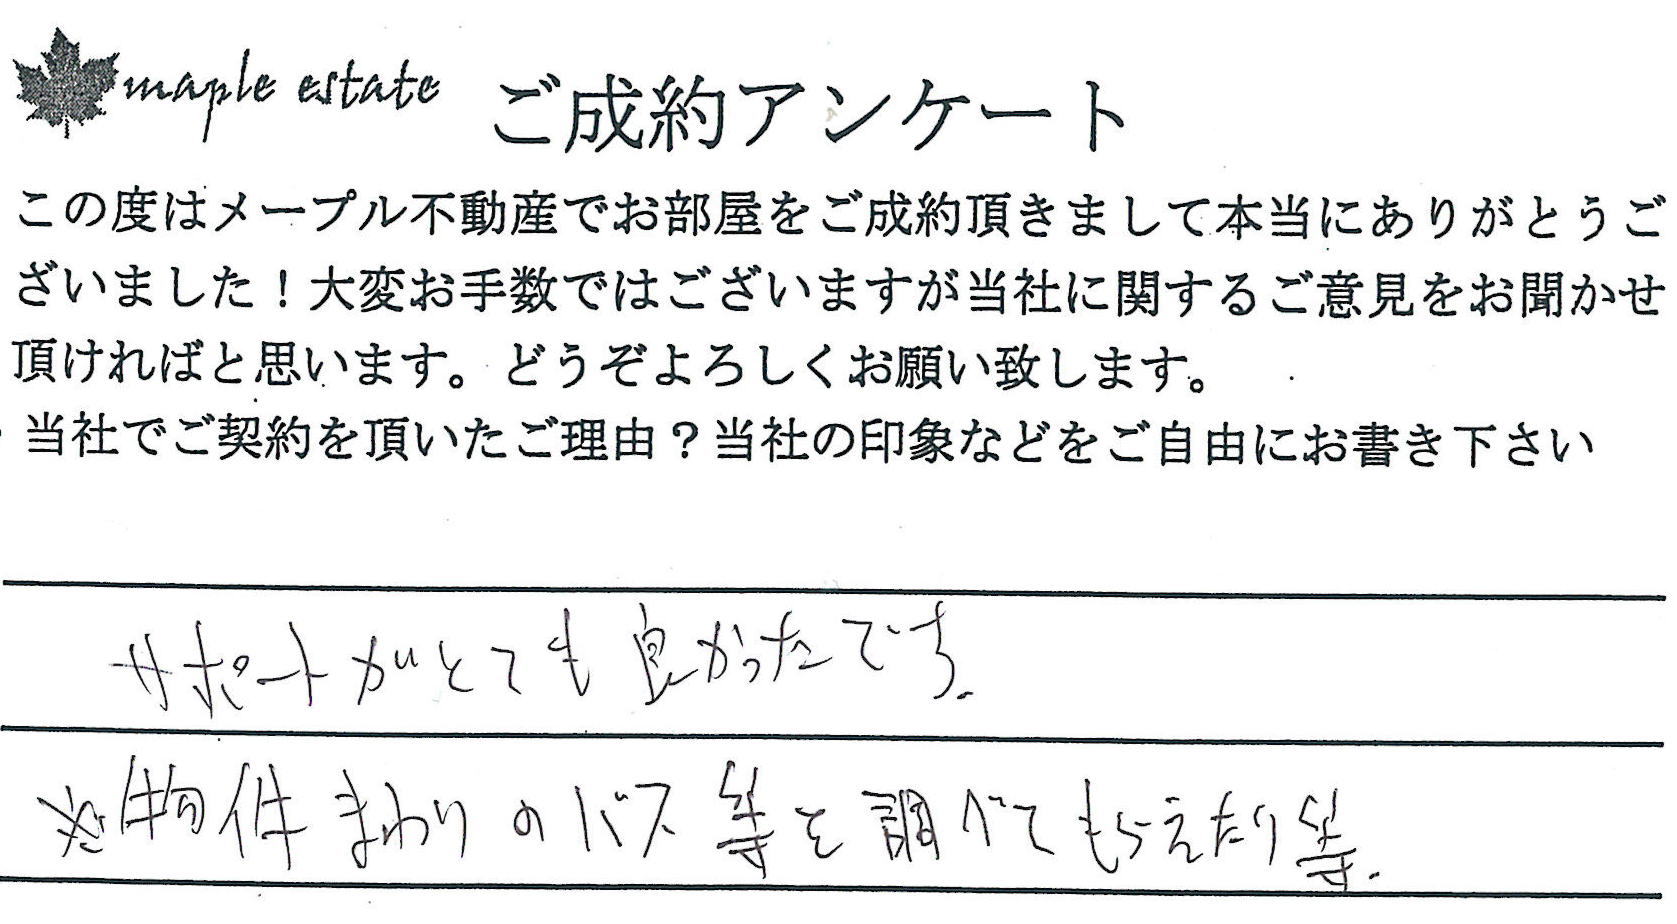 maple estate ご成約アンケート
この度はメープル不動産でお部屋をご成約頂きまして本当にありがとうご
ざいました！大変お手数ではございますが当社に関するご意見をお聞かせ
頂ければと思います。どうぞよろしくお願い致します。
・当社でご契約を頂いたご理由？当社の印象などをご自由にお書き下さい
サポートがとても良かったです.
※物件まわりのバス等を調べてもらえたり等.